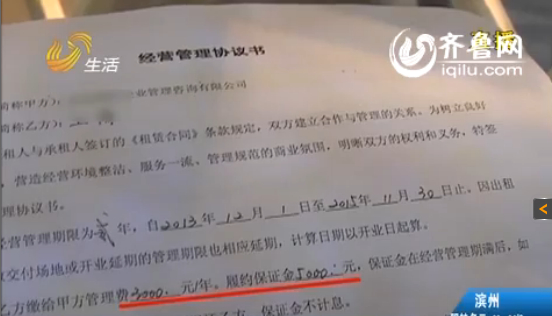 直播
生活
齐鲁网
iqilu.com
经营管理协议书
简称甲方):
业管理咨询有限公司
简称乙方):
租人与承租人签订的《租赁合同》条款规定，双方建立合作与管理的关系。为树立良好
，营造经营环境整洁、服务一流、管理规范的商业氛围，明晰双方的权利和义务，特签
理协议书。
经营管理期限为贰年，自2013年12月1日至2015年11月30日止，因出租
交付场地或开业延期的管理期限也相应延期，计算日期以开业日起算。
乙方缴给甲方管理费3000.元/年。履约保证金5000.元，保证金在经营管理期满后，如
乙方，保证金不计息。
滨州